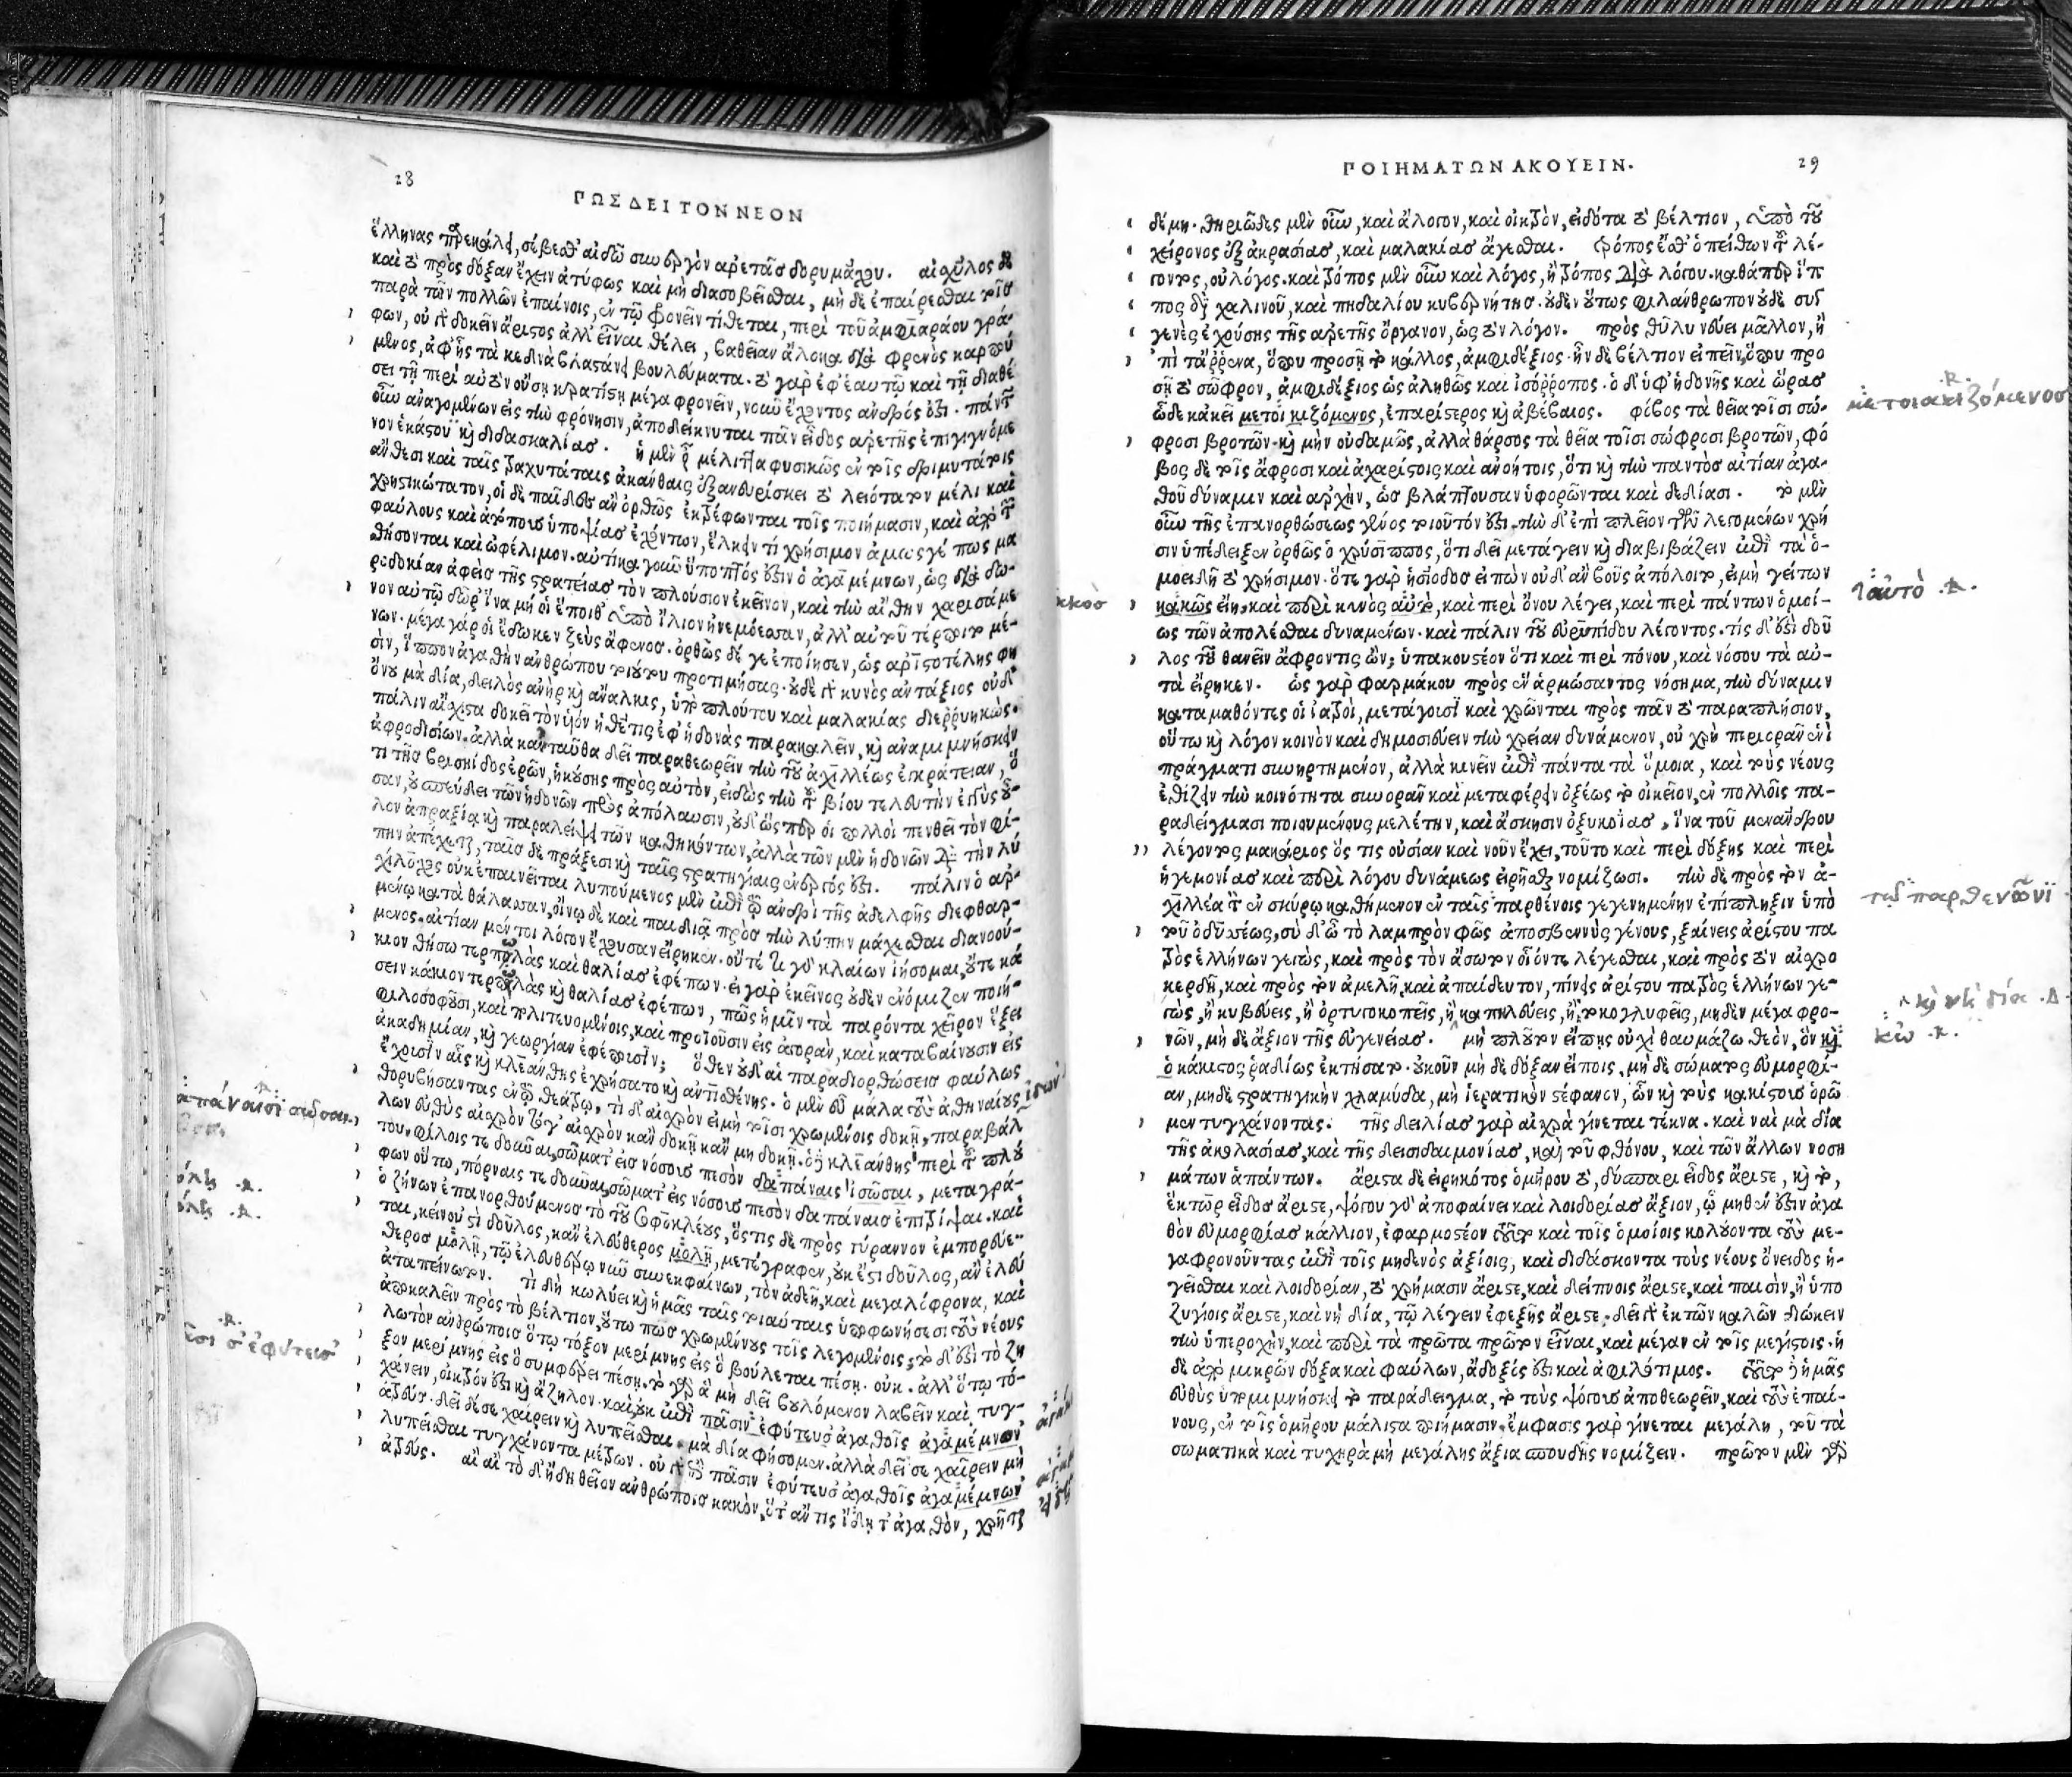 28
ΠΩΣ ΔΕΙ ΤΟΝ ΝΕΟΝ
καὶ τὸ πρὸς δόξαν ἔχειν ἀτύφως καὶ μὴ διασοβεῖσθαι, μὴ δὲ ἐπαίρεσθαι τοῖς
παρὰ τῶν πολλῶν ἐπαίνοις, ἐν τῷ φρονεῖν τίθεται, περὶ τοῦ ἀμφιαράου γρά-
φων, οὐ γὰρ δοκεῖν ἄριστος ἀλλ' εἶναι θέλει, βαθεῖαν ἄλοκα διὰ φρενὸς καρπού
μενος, ἀφ' ἧς τὰ κεδνὰ βλαστάνει βουλεύματα. τὸ γὰρ ἐφ' ἑαυτῷ καὶ τῇ διαθέ
σει τῇ περὶ αὐτὸν οὔσῃ κρατίστῃ μέγα φρονεῖν, νοῦν ἔχοντος ἀνδρός ἐστι. πάντων
οὖν ἀναγομένων εἰς τὴν φρόνησιν, ἀποδείκνυται πᾶν εἶδος ἀρετῆς ἐπιγιγνόμε
νον ἐκ λόγου καὶ διδασκαλίας. ἡ μὲν οὖν μέλιττα φυσικῶς ἐν τοῖς δριμυτάτοις
ἄνθεσι καὶ ταῖς τραχυτάταις ἀκάνθαις ἐξανευρίσκει τὸ λειότατον μέλι καὶ
χρηστικώτατον, οἱ δὲ παῖδες ἂν ὀρθῶς ἐκτρέφωνται τοῖς ποιήμασιν, καὶ ἀπὸ τῶν
φαύλους καὶ ἀτόπους ὑποψίας ἐχόντων, ἕλκειν τι χρήσιμον ἁμωσγέ πως μα
θήσονται καὶ ὠφέλιμον. αὐτίκα γοῦν ὕποπτός ἐστιν ὁ ἀγαμέμνων, ὡς διὰ δω-
ροδοκίαν ἀφεὶς τῆς στρατείας τὸν πλούσιον ἐκεῖνον, καὶ τὴν αἴθην χαρισάμε
νον αὐτῷ δῶρ' ἵνα μή οἱ ἕποιθ' ὑπὸ ἴλιον ἠνεμόεσσαν, ἀλλ' αὐτοῦ τέρποιτο μέ-
νων. μέγα γάρ οἱ ἔδωκεν ζεὺς ἄφενος. ὀρθῶς δέ γε ἐποίησεν, ὡς ἀριστοτέλης φη
σὶν, ἵππον ἀγαθὴν ἀνθρώπου τοιούτου προτιμήσας. οὐδὲ γὰρ κυνὸς ἀντάξιος οὐδ'
ὄνου μὰ δία, δειλὸς ἀνὴρ καὶ ἄναλκις, ὑπὸ πλούτου καὶ μαλακίας διερρυηκώς.
πάλιν αἴχιστα δοκεῖ τὸν υἱὸν ἡ θέτις ἐφ' ἡδονὰς παρακαλεῖν, καὶ ἀναμιμνήσκειν
ἀφροδισίων. ἀλλὰ κἀνταῦθα δεῖ παραθεωρεῖν τὴν τοῦ ἀχιλλέως ἐγκράτειαν, ὅ
τι τῆς βρισηίδος ἐρῶν, ἡκούσης πρὸς αὐτὸν, εἰδὼς τὴν τοῦ βίου τελευτὴν ἐγγὺς οὖ-
σαν, οὐ σπεύδει τῶν ἡδονῶν πρὸς ἀπόλαυσιν, οὐδ' ὥσπερ οἱ πολλοὶ πενθεῖ τὸν φί-
λον ἀπραξίᾳ καὶ παραλείψει τῶν καθηκόντων, ἀλλὰ τῶν μὲν ἡδονῶν διὰ τὴν λύ
πην ἀπέχεται, ταῖς δὲ πράξεσι καὶ ταῖς στρατηγίαις ἐνεργός ἐστι. πάλιν ὁ ἀρ-
χίλοχος οὐκ ἐπαινεῖται λυπούμενος μὲν ἐπὶ τῷ ἀνδρὶ τῆς ἀδελφῆς διεφθαρ-
μένῳ κατὰ θάλασσαν, οἴνῳ δὲ καὶ παιδιᾷ πρὸς τὴν λύπην μάχεσθαι διανοού-
μενος. αἰτίαν μέντοι λόγον ἔχουσαν εἴρηκεν. οὔτέ τι γὰρ κλαίων ἰήσομαι, οὔτε κά
κιον θήσω τερπωλὰς καὶ θαλίας ἐφέπων. εἰ γὰρ ἐκεῖνος οὐδὲν ἐνόμιζεν ποιή-
σειν κάκιον τερπωλὰς καὶ θαλίας ἐφέπων, πῶς ἡμῖν τὰ παρόντα χεῖρον ἕξει
φιλοσοφοῦσι, καὶ πολιτευομένοις, καὶ προϊοῦσιν εἰς ἀγορὰν, καὶ καταβαίνουσιν εἰς
ἀκαδημίαν, καὶ γεωργίαν ἐφέπουσιν; ὅθεν οὐδ' αἱ παραδιορθώσεις φαύλως
ἔχουσιν αἷς καὶ κλεάνθης ἐχρήσατο καὶ ἀντισθένης. ὁ μὲν εὖ μάλα τοὺς ἀθηναίους
θορυβήσαντας ἐν τῷ θεάτρῳ, τί δ' αἰσχρὸν εἰ μὴ τοῖσι χρωμένοις δοκῇ, παραβάλ
λων εὐθὺς αἰσχρὸν τό γ' αἰσχρὸν κἂν δοκῇ κἂν μὴ δοκῇ. ὁ δὲ κλεάνθης περὶ τοῦ πλού
του, φίλοις τε δοῦναι, σῶμα τ' εἰς νόσους πεσὸν δαπάναις σῶσαι, μεταγρά-
φων οὕτω, πόρναις τε δοῦναι, σῶμα τ' εἰς νόσους πεσὸν δαπάναις ἐπιτρίψαι. καὶ
ὁ ζήνων ἐπανορθούμενος τὸ τοῦ σοφοκλέους, ὅστις δὲ πρὸς τύραννον ἐμπορεύε-
ται, κείνου στὶ δοῦλος, κἂν ἐλεύθερος μολῇ, μετέγραφεν, οὐκ ἔστι δοῦλος, ἂν ἐλεύ
θερος μολῇ, τῷ ἐλευθέρῳ νῦν συνεκφαίνων, τὸν ἀδεῆ, καὶ μεγαλόφρονα, καὶ
ἀταπείνωτον. τί δὴ κωλύει καὶ ἡμᾶς ταῖς τοιαύταις ὑποφωνήσεσι τοὺς νέους
ἀποκαλεῖν πρὸς τὸ βέλτιον, οὕτω πως χρωμένους τοῖς λεγομένοις; τὸ δ' ἐστὶ τὸ ζη
λωτὸν ἀνθρώποις ὅτῳ τόξον μερίμνης εἰς ὃ βούλεται πέσῃ. οὐκ. ἀλλ' ὅτῳ τό-
ξον μερίμνης εἰς ὃ συμφέρει πέσῃ. τὸ γὰρ ἃ μὴ δεῖ βουλόμενον λαβεῖν καὶ τυγ-
χάνειν, οἰκτρόν ἐστι καὶ ἄζηλον. καὶ οὐκ ἐπὶ πᾶσιν ἐφύτευσ ἀγαθοῖς ἀγαμέμνων
ἀτρεύς. δεῖ δέ σε χαίρειν καὶ λυπεῖσθαι. μὰ δία φήσομεν. ἀλλὰ δεῖ σε χαίρειν μὴ
λυπεῖσθαι τυγχάνοντα μέτρων. οὐ γὰρ ἐπὶ πᾶσιν ἐφύτευσ ἀγαθοῖς ἀγαμέμνων
ἀτρεύς. αἲ αἲ τὸ δ' ἤδη θεῖον ἀνθρώποις κακὸν, ὅτ' ἄν τις ἴδῃ τ' ἀγαθὸν, χρῆται
ΠΟΙΗΜΑΤΩΝ ΑΚΟΥΕΙΝ.
29
δέ μη. θηριῶδες μὲν οὖν, καὶ ἄλογον, καὶ οἰκτρὸν, εἰδότα τὸ βέλτιον, ὑπὸ τοῦ
χείρονος ἐξ ἀκρασίας, καὶ μαλακίας ἄγεσθαι. τρόπος ἔσθ' ὁ πείθων τοῦ λέ-
γοντος, οὐ λόγος. καὶ τρόπος μὲν οὖν καὶ λόγος, ἢ τρόπος διὰ λόγου. καθάπερ ἵπ
πος διὰ χαλινοῦ, καὶ πηδαλίου κυβερνήτης. οὐδὲν οὕτως φιλάνθρωπον οὐδὲ συγ
γενὲς ἐχούσης τῆς ἀρετῆς ὄργανον, ὡς τὸν λόγον. πρὸς θῆλυ νεύει μᾶλλον, ἢ
'πὶ τἄρρενα, ὅπου προσῇ τὸ κάλλος, ἀμφιδέξιος. ἦν δὲ βέλτιον εἰπεῖν, ὅπου προ
σῇ τὸ σῶφρον, ἀμφιδέξιος ὡς ἀληθῶς καὶ ἰσόρροπος. ὁ δ' ὑφ' ἡδονῆς καὶ ὥρας
ὧδε κἀκεῖ μετοι κιζόμενος, ἐπαρίστερος καὶ ἀβέβαιος. φόβος τὰ θεῖα τοῖσι σώ-
φροσι βροτῶν. καὶ μὴν οὐδαμῶς, ἀλλὰ θάρσος τὰ θεῖα τοῖσι σώφροσι βροτῶν, φό
βος δὲ τοῖς ἄφροσι καὶ ἀχαρίστοις καὶ ἀνοήτοις, ὅτι καὶ τὴν παντὸς αἰτίαν ἀγα-
θοῦ δύναμιν καὶ ἀρχὴν, ὡς βλάπτουσαν ὑφορῶνται καὶ δεδίασι. τὸ μὲν
οὖν τῆς ἐπανορθώσεως γένος τοιοῦτόν ἐστι. τὴν δ' ἐπὶ πλεῖον τῶν λεγομένων χρῆ
σιν ὑπέδειξεν ὀρθῶς ὁ χρύσιππος, ὅτι δεῖ μετάγειν καὶ διαβιβάζειν ἐπὶ τὰ ὁ-
μοειδῆ τὸ χρήσιμον. ὅτε γὰρ ἡσίοδος εἰπὼν οὐδ' ἂν βοῦς ἀπόλοιτο, εἰ μὴ γείτων
κακῶς εἴη, καὶ περὶ κυνὸς αὐτὸ, καὶ περὶ ὄνου λέγει, καὶ περὶ πάντων ὁμοί-
ως τῶν ἀπολέσθαι δυναμένων. καὶ πάλιν τοῦ εὐριπίδου λέγοντος. τίς δ' ἐστὶ δοῦ
λος τοῦ θανεῖν ἄφροντις ὤν; ὑπακουστέον ὅτι καὶ περὶ πόνου, καὶ νόσου τὰ αὐ-
τὰ εἴρηκεν. ὡς γὰρ φαρμάκου πρὸς ἓν ἁρμόσαντος νόσημα, τὴν δύναμιν
καταμαθόντες οἱ ἰατροὶ, μετάγουσι καὶ χρῶνται πρὸς πᾶν τὸ παραπλήσιον,
οὕτω καὶ λόγον κοινὸν καὶ δημοσιεύειν τὴν χρείαν δυνάμενον, οὐ χρὴ περιορᾶν ἑνὶ
πράγματι συνηρτημένον, ἀλλὰ κινεῖν ἐπὶ πάντα τὰ ὅμοια, καὶ τοὺς νέους
ἐθίζειν τὴν κοινότητα συνορᾶν καὶ μεταφέρειν ὀξέως τὸ οἰκεῖον, ἐν πολλοῖς πα-
ραδείγμασι ποιουμένους μελέτην, καὶ ἄσκησιν ὀξυκοΐας, ἵνα τοῦ μενάνδρου
λέγοντος μακάριος ὅς τις οὐσίαν καὶ νοῦν ἔχει, τοῦτο καὶ περὶ δόξης καὶ περὶ
ἡγεμονίας καὶ περὶ λόγου δυνάμεως εἰρῆσθαι νομίζωσι. τὴν δὲ πρὸς τὸν ἀ-
χιλλέα τὸν ἐν σκύρῳ καθήμενον ἐν ταῖς παρθένοις γεγενημένην ἐπίπληξιν ὑπὸ
τοῦ ὀδυσσέως, σὺ δ' ὦ τὸ λαμπρὸν φῶς ἀποσβεννὺς γένους, ξαίνεις ἀρίστου πα
τρὸς ἑλλήνων γεγὼς, καὶ πρὸς τὸν ἄσωτον οἴονται λέγεσθαι, καὶ πρὸς τὸν αἰσχρο
κερδῆ, καὶ πρὸς τὸν ἀμελῆ, καὶ ἀπαίδευτον, πίνεις ἀρίστου πατρὸς ἑλλήνων γε-
γὼς, ἢ κυβεύεις, ἢ ὀρτυγοκοπεῖς, ἢ καπηλεύεις, ἢ τοκογλυφεῖς, μηδὲν μέγα φρο-
νῶν, μὴ δὲ ἄξιον τῆς εὐγενείας. μὴ πλοῦτον εἴπῃς οὐχὶ θαυμάζω θεὸν, ὃν καὶ
ὁ κάκιστος ῥᾳδίως ἐκτήσατο. οὐκοῦν μὴ δὲ δόξαν εἴποις, μὴ δὲ σώματος εὐμορφί-
αν, μηδὲ στρατηγικὴν χλαμύδα, μὴ ἱερατικὸν στέφανον, ὧν καὶ τοὺς κακίστους ὁρῶ
μεν τυγχάνοντας. τῆς δειλίας γὰρ αἰσχρὰ γίνεται τέκνα. καὶ ναὶ μὰ δία
τῆς ἀκολασίας, καὶ τῆς δεισιδαιμονίας, καὶ τοῦ φθόνου, καὶ τῶν ἄλλων νοση
μάτων ἁπάντων. ἄριστα δὲ εἰρηκότος ὁμήρου τὸ, δύσπαρι εἶδος ἄριστε, καὶ τὸ,
ἕκτορ εἶδος ἄριστε, ψόγου γὰρ ἀποφαίνει καὶ λοιδορίας ἄξιον, ᾧ μηθέν ἐστιν ἀγα
θὸν εὐμορφίας κάλλιον, ἐφαρμοστέον τοῦτο καὶ τοῖς ὁμοίοις κολούοντα τοὺς με-
γαφρονοῦντας ἐπὶ τοῖς μηδενὸς ἀξίοις, καὶ διδάσκοντα τοὺς νέους ὄνειδος ἡ-
γεῖσθαι καὶ λοιδορίαν, τὸ χρήμασιν ἄριστε, καὶ δείπνοις ἄριστε, καὶ παισὶν, ἢ ὑπο
ζυγίοις ἄριστε, καὶ νὴ δία, τῷ λέγειν ἐφεξῆς ἄριστε. δεῖ γὰρ ἐκ τῶν καλῶν διώκειν
τὴν ὑπεροχὴν, καὶ περὶ τὰ πρῶτα πρῶτον εἶναι, καὶ μέγαν ἐν τοῖς μεγίστοις. ἡ
δὲ ἀπὸ μικρῶν δόξα καὶ φαύλων, ἄδοξός ἐστι καὶ ἀφιλότιμος. τοῦτο δὲ ἡμᾶς
εὐθὺς ὑπομιμνήσκει τὸ παράδειγμα, τὸ τοὺς ψόγους ἀποθεωρεῖν, καὶ τοὺς ἐπαί-
νους, ἐν τοῖς ὁμήρου μάλιστα ποιήμασιν. ἔμφασις γὰρ γίνεται μεγάλη, τοῦ τὰ
σωματικὰ καὶ τυχηρὰ μὴ μεγάλης ἄξια σπουδῆς νομίζειν. πρῶτον μὲν γὰρ
μετοιακιζόμενος
ταὐτὸ
παρθενῶνι
καὶ νὴ δία